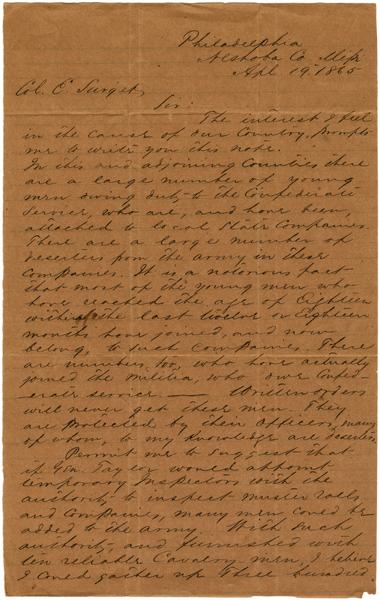 Philadelphia
Neshoba Co. Miss
Apl. 19. 1865
Col. E. Surget,
Sir:
The interest I feel
in the cause of our Country, prompts
me to write you this note.
In this and adjoining Counties there
are a large number of young
men owing duty to the Confederate
Service, who are, and have been,
attached to local State Companies.
There are a large number of
deserters from the army in these
Companies. It is a notorious fact
that most of the young men who
have reached the age of Eighteen
within the last twelve or Eighteen
months have joined, and now
belong, to such companies. There
are numbers, too, who have actually
joined the Militia, who owe Confed-
erate service. — Written orders
will never get these men. They
are protected by their Officers, many
of whom, to my Knowledge are deserters.
Permit me to suggest that
if Gen. Taylor would appoint
temporary Inspectors with the
authority to inspect Muster rolls
and Companies, many men could be
added to the army. With such
authority, and furnished with
ten reliable Cavalry men, I believe
I could gather up three hundred